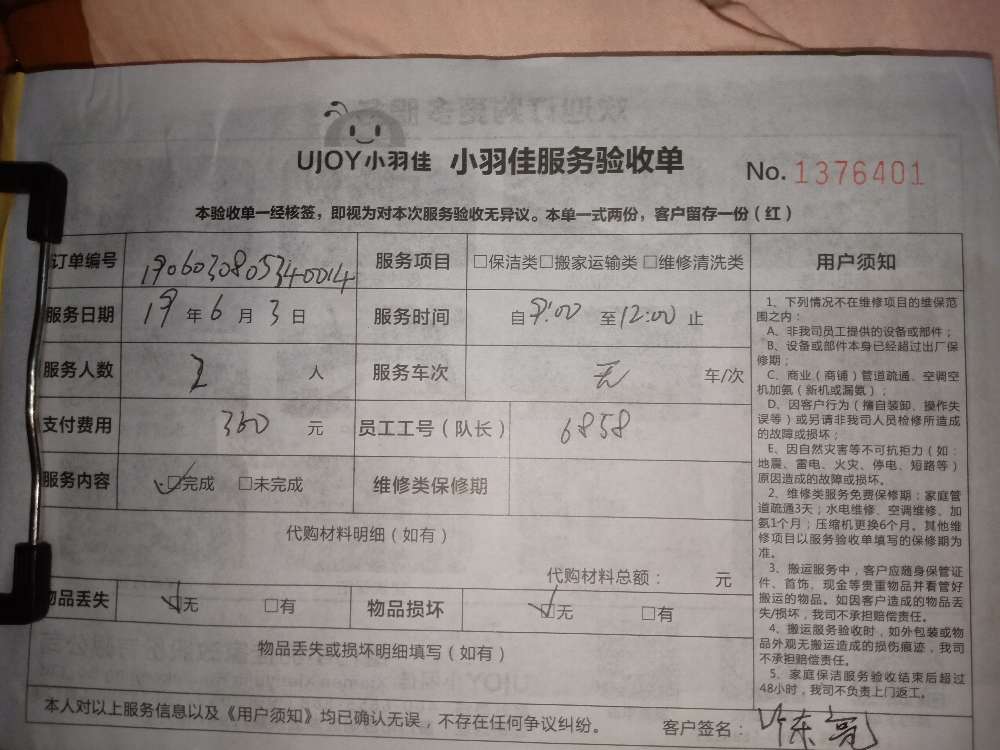 UJOY小羽佳 小羽佳服务验收单 No.1376401
本验收单一经核签，即视为对本次服务验收无异议。本单一式两份，客户留存一份（红）
订单编号 1906030805340014 服务项目 □保洁类□搬家运输类□维修清洗类 用户须知
服务日期 19年6月3日 服务时间 自9:00至12:00止
服务人数 人 服务车次 无 车/次
支付费用 360 元 员工工号（队长） 6858
服务内容 ☑完成 □未完成 维修类保修期
代购材料明细（如有）
代购材料总额： 元
物品丢失 ☑无 □有 物品损坏 ☑无 □有
物品丢失或损坏明细填写（如有）
1、下列情况不在维修项目的维保范
围之内：
A、非我司员工提供的设备或部件；
B、设备或部件本身已经超过出厂保
修期；
C、商业（商铺）管道疏通、空调空
机加氨（新机或漏氨）；
D、因客户行为（擅自装卸、操作失
误等）或另请非我司人员检修所造成
的故障或损坏；
E、因自然灾害等不可抗拒力（如：
地震、雷电、火灾、停电、短路等）
原因造成的故障或损坏。
2、维修类服务免费保修期：家庭管
道疏通3天；水电维修、空调维修、加
氨1个月；压缩机更换6个月。其他维
修项目以服务验收单填写的保修期为
准。
3、搬运服务中，客户应随身保管证
件、首饰、现金等贵重物品并看管好
搬运的物品。如因客户造成的物品丢
失/损坏，我司不承担赔偿责任。
4、搬运服务验收时，如外包装或物
品外观无搬运造成的损伤痕迹，我司
不承担赔偿责任。
5、家庭保洁服务验收结束后超过
48小时，我司不负责上门返工。
本人对以上服务信息以及《用户须知》均已确认无误，不存在任何争议纠纷。 客户签名：